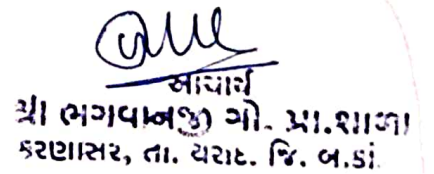 આચાર્ય
શ્રી ભગવાનજી ગો. પ્રા.શાળા
કરણાસર, તા. થરાદ. જિ. બ.કાં.